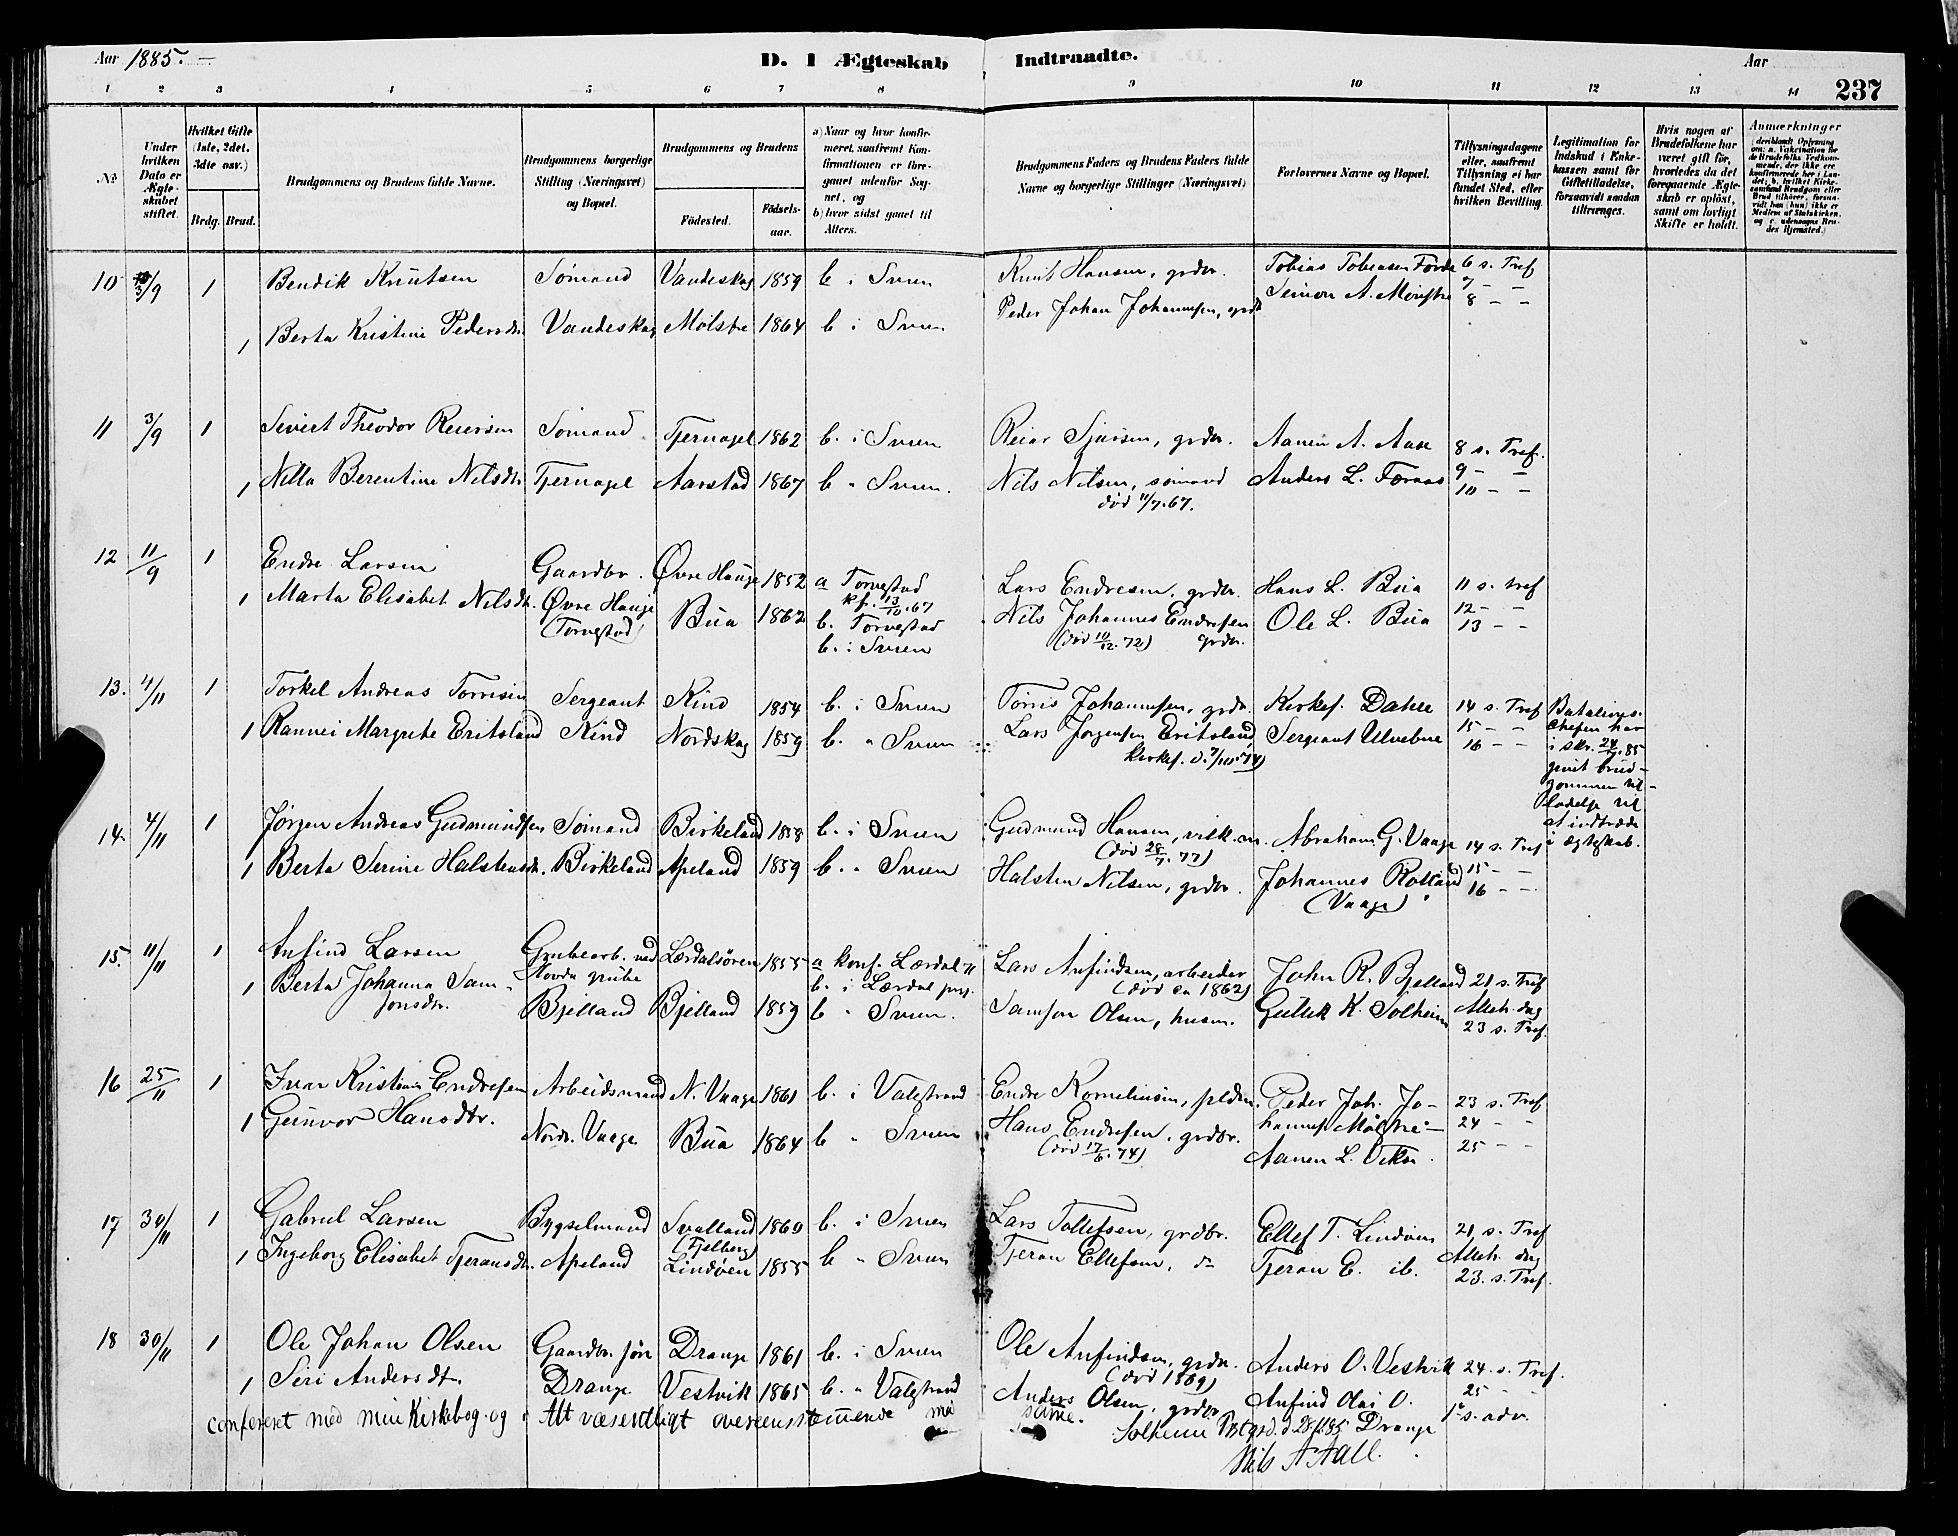 Aar 1885. —
D. 1 Ægteskab Indtraadte.
Aar
237
1 2 3 4 5 6 7 8 9 10 11 12 13 14
No
Under hvilken Dato er Ægteskabet stiftet.
Hvilket Gifte (1ste, 2det, 3dte osv.)
Brdg. Brud.
Brudgommens og Brudens fulde Navne.
Brudgommens borgerlige Stilling (Næringsvei) og Bopæl.
Brudgommens og Brudens
Födested.
Födselsaar.
a) Naar og hvor konfirmeret, saafremt Konfirmationen er foregaaet udenfor Sognet, og
b) hvor sidst gaaet til Alters.
Brudgommens Faders og Brudens Faders fulde Navne og borgerlige Stillinger (Næringsvei)
Forlovernes Navne og Bopæl.
Tillysningsdagene eller, saafremt Tillysning ei har fundet Sted, efter hvilken Bevilling.
Legitimation for Indskud i Enkekassen samt for Giftetilladelse, forsaavidt saadan tiltrænges.
Hvis nogen af Brudefolkene har været gift för, hvorledes da det foregaaende Ægteskab er oplöst, samt om lovligt Skifte er holdt.
Anmærkninger
10 3/9 1 Bendik Knutsen Sømand Vandeskog 1859 b i Sveen Knut Hansen, grdbr. Tobias Tobiasen Førde 6 s. Tref
7 – –
Simon A. Mønstre 8 – –
1 Berta Kristine Pedersdtr. Vandeskog Mølstre 1864 b i Sveen Peder Johan Johannesen, grdb
11 3/9 1 Sivert Theodor Reiersen Sømand Tjernagel 1862 b. i Sveen Reiar Sjursen, grdbr. Aanen A. Aase 8 s. Tref.
9 – –
1 Nilla Berentine Nilsdtr Tjernagel Aarstad 1867 b " Sveen. Nils Nilsen, sømand Anders L. Færaas 10 – –
død 11/7.67.
12 11/9 1 Endre Larsen Gaardbr. Øvre Hauge 1852 a Torvestad Lars Endresen, grdbr. Hans L. Bua 11 s. tref
kf. 13/10.67
1 Marta Elisabet Nilsdtr. Øvre Hauge Bua 1862 b. Torvestad Nils Johannes Endresen Ole L. Bua 12 – –
(Torvestad) b. i Sveen (død 10/12.72) grdbr. 13 – –
13. 4/11 1 Torkel Andreas Torrisen Sergeant Kind 1854 b. i Sveen Torris Johannesen, grdbr. Kirkes. Dahle 14 s. Tref
15 – –
1 Rannei Margrete Eritsland Kind Nordskog 1859 b. " Sveen Lars Jørgensen Eritsland Sergeant Ulvebne 16 – –
kirkes. d. 7/10.74)
Batalions.
chefen har
i skr. 24/9.85
givet brud-
gommen til-
ladelse til
at indtræde
i ægteskab.
14. 4/11 1 Jørgen Andreas Gudmundsen Sømand Birkeland 1858 b. i Sveen Gudmund Hansen, Abraham G. Vaage 14 s. Tref
(død 28/7.77) 15 – –
1 Berta Serine Halstensdtr. Birkeland Apeland 1859 b. " Sveen Halsten Nilsen, grdbr. Johannes 16 – –
(Vaage)
15. 11/11 1 Anfind Larsen Grubearb. ved Lærdalsøren 1855 a konf. Lærdal Lars Anfindsen, arbeider John R. Bjelland 21 s. Tref
grube b. i Lærdal (død ca 1862)
1 Berta Johanna Sam-
jonsdtr. Bjelland Bjelland 1859 b " Sveen. Samson Olsen, husm. Gullek K. Solheim Alleh. dag
23 s. Tref.
16 25/11 1 Ivar Kristian Endresen Arbeidsmand N. Vaage 1861 b. i Valestrand Endre Kornelius, Peder Joh. Jo- 23 s. Tref
hannes Mølstre – 24 – –
1 Gunvor Hansdtr. Nordr. Vaage Bua 1864 b " Sveen Hans Endresen, grdbr. Aanen L. 25 –
(død 17/6.74)
17 30/11 1 Gabriel Larsen Bygselmand Svalland 1860 b. i Sveen Lars Tollefsen, grdbr. Ellef T. Lindøen 21 s. Tref
(Fjelberg) Alleh. dag
1 Ingeborg Elisabet Tjeransdtr. Apeland Lindøen 1855 b " Sveen Tjeran Ellefsen, d– Tjeran E. ib. 23. s. Tref.
18 30/11 1 Ole Johan Olsen Gaardbr. søn Drange 1861 b. i Sveen Ole Anfindsen, grdbr. Anders O. Vestvik 24 s. Tref.
(død 1869) 25 – –
1 Siri Andersdtr. Drange Vestvik 1865 b. " Valestrand Anders Olsen, grdbr. Anfind Olai O. 1ste s. adv.
Drange
conferert med min Kirkebog og i Alt væsentligt overenstemmende med samme.
Solheim Prstgrd. d 28/1.85
Nils A Aall.